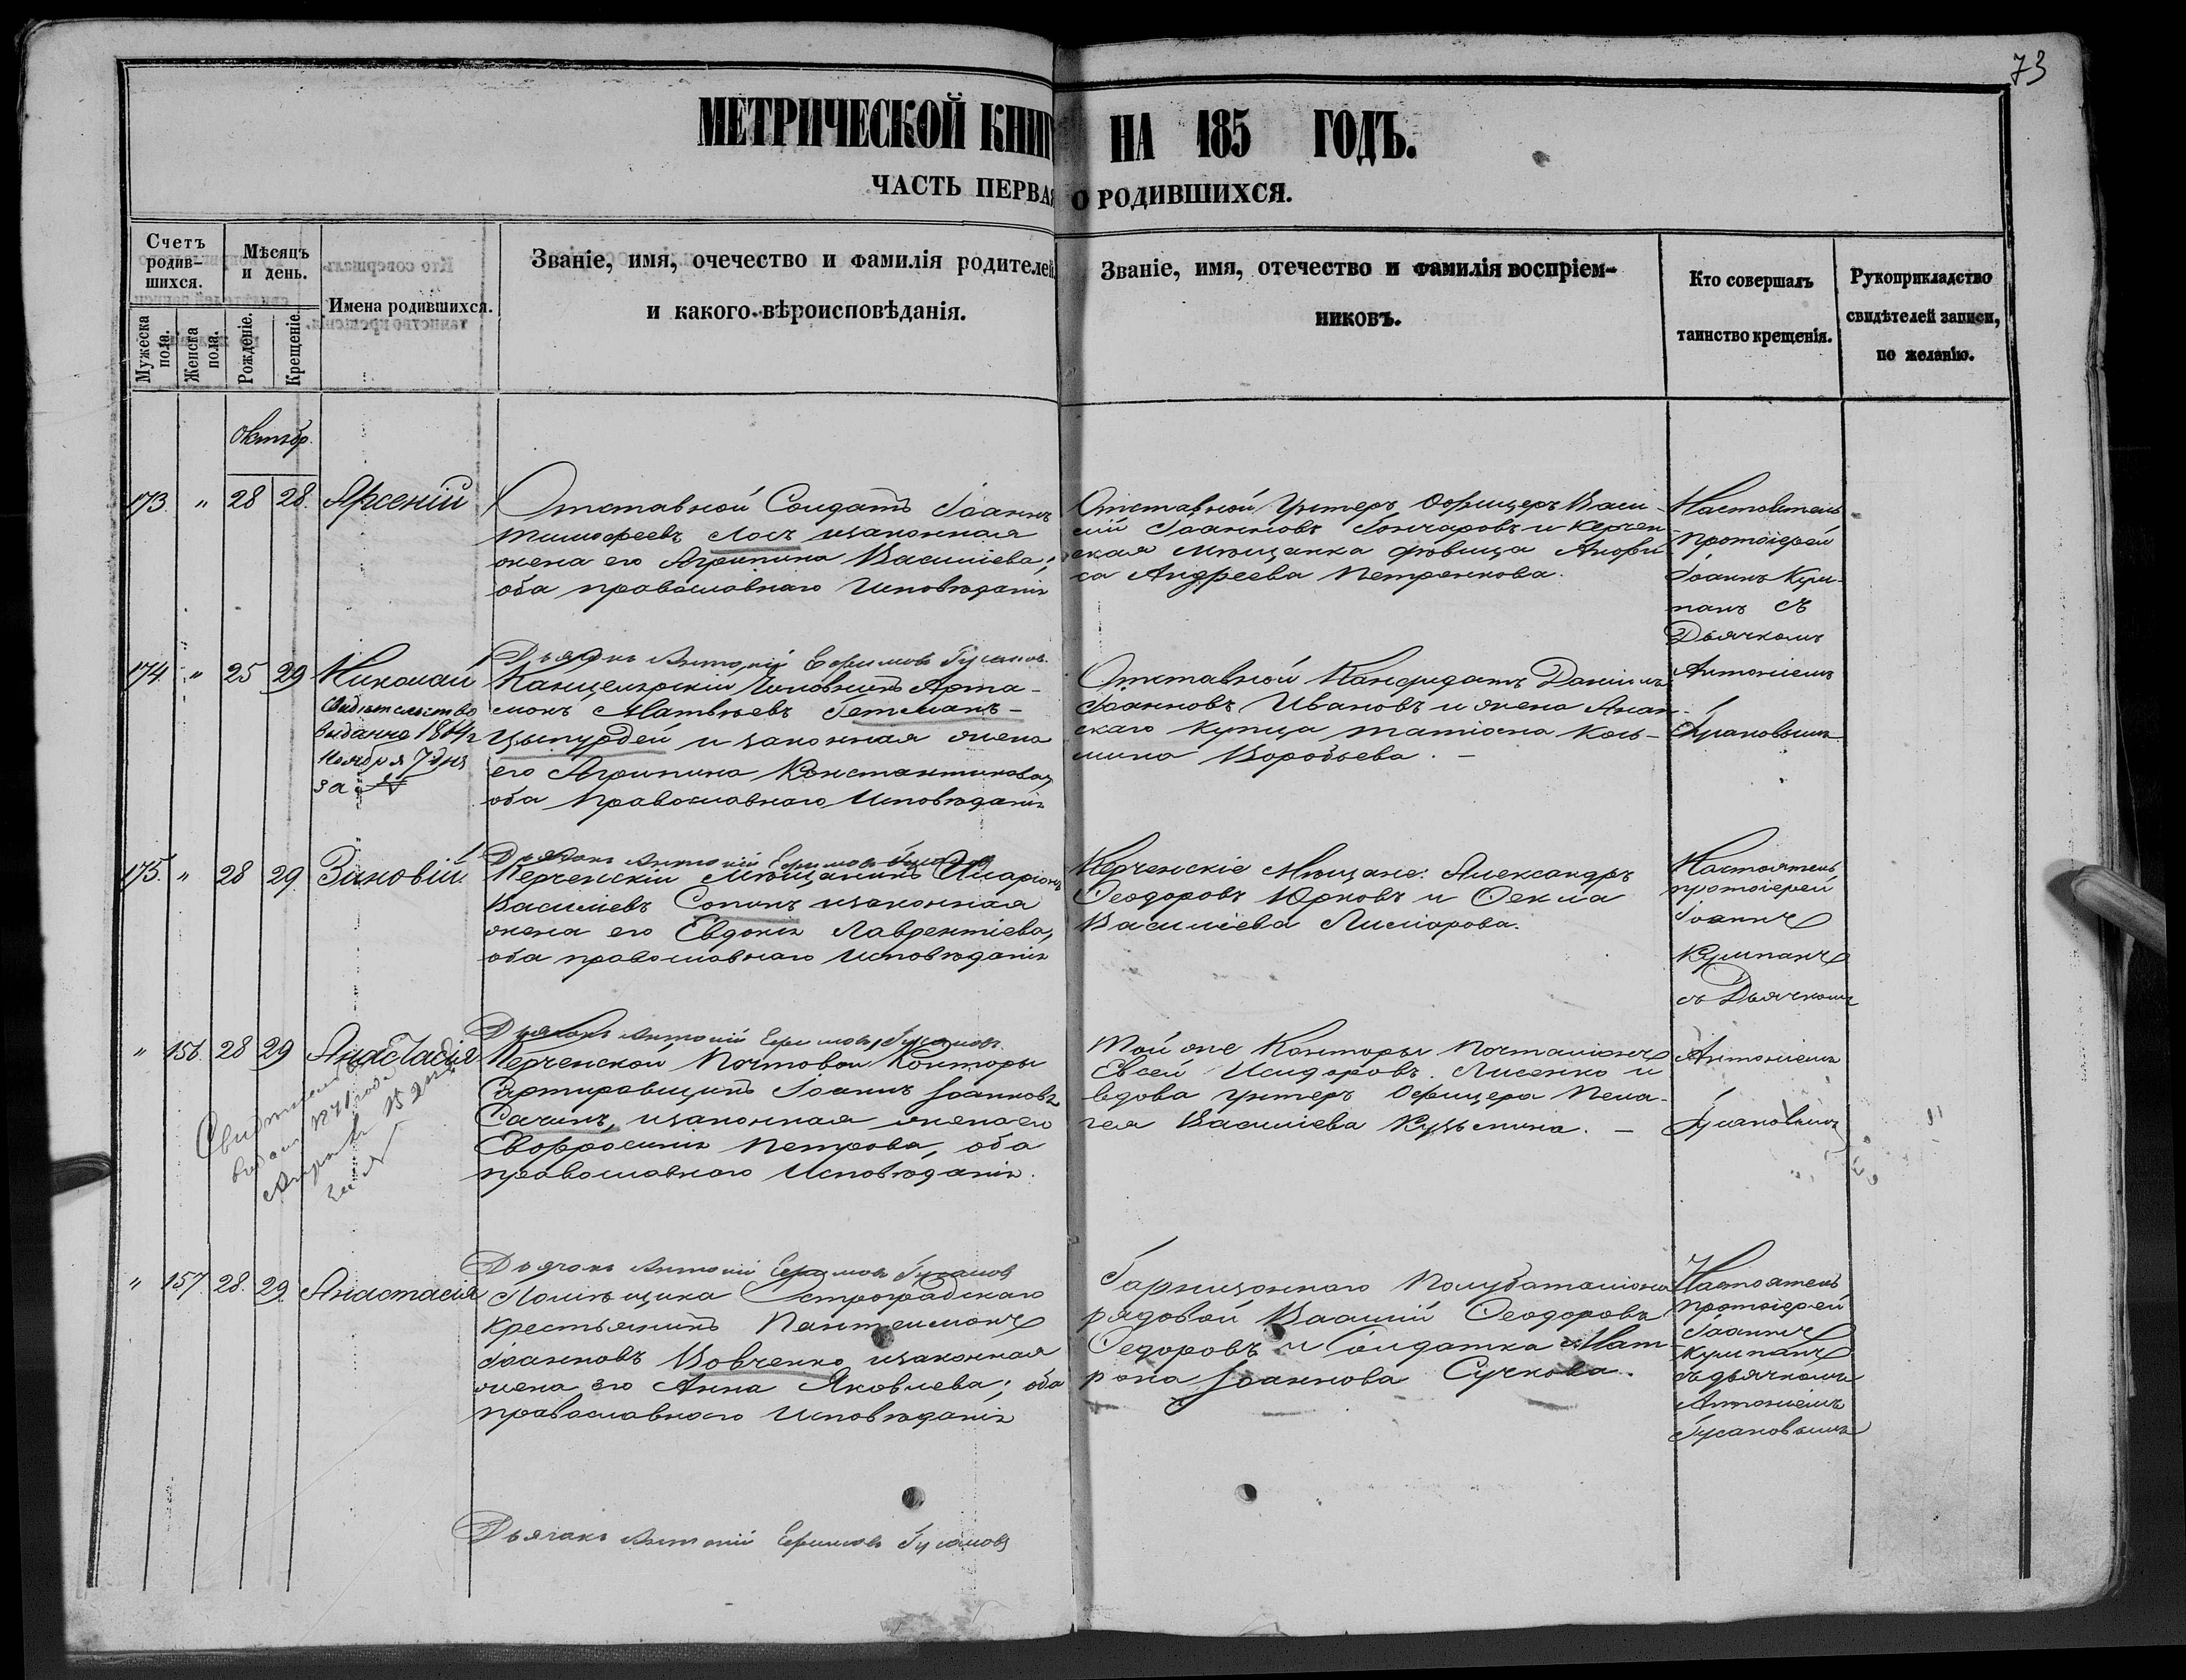 73
МЕТРИЧЕСКОЙ КНИГ НА 185 ГОДЪ.
ЧАСТЬ ПЕРВАЯ О РОДИВШИХСЯ.
Счетъ родив-
шихся.
Мужеска пола.
Женска пола.
Мѣсяцъ
и день.
Рожденіе.
Крещеніе.
Имена родившихся.
Званіе, имя, очечество и фамилія родителей
и какого вѣроисповѣданія.
Званіе, имя, отечество и фамилія воспріем-
никовъ.
Кто совершалъ
таинство крещенія.
Рукоприкладство
свидѣтелей записи,
по желанію.
Октябр.
173. " 28 28. Арсеній
Отставной Солдатъ Іоаннъ
Тимофеевъ Лось изаконная
жена его Агрипина Василіева;
оба православнаго Исповѣданія
Отставной Унтеръ Офицеръ Васи-
лій Іоанновъ Гончаровъ и Керчен-
ская Мѣщанка дѣвица Анфи
са Андреева Петренкова.
Настоятель
Протоіерей
Іоаннъ Кум-
панъ съ
Дьячкомъ
Антоніемъ
Дьячокъ Антоній Ефимовъ Гусаковъ
174. " 25 29 Николай
Свидѣтельство
выданно 1864 г
Ноября 7 дня
за №
Канцелярскій Чиновникъ Арта-
монъ Матвѣевъ Гетманъ-
и законная жена
его Агрипина Константинова,
оба Православнаго Исповѣданія
Отставной Кандидатъ Даніилъ
Іоанновъ Ивановъ и жена Анап-
скаго купца Матрона Кось-
мина Воробьева. —
Дьячокъ Антоній Ефимовъ
175. " 28 29. Зиновій.
Керченскій Мѣщанинъ Иларіонъ
Василіевъ Сопинъ изаконная
жена его Евдокія Лаврентіева,
оба православнаго Исповѣданія
Керченскіе Мѣщане: Александръ
Ѳеодоровъ Юрковъ и Ѳекла
Василіева Лиміарова.
Настоятель
протоіерей
Іоаннъ
Кумпанъ
съ Дьячкомъ
Антоніемъ
Дьячокъ Антоній Ефимовъ Гусаковъ
" 156. 28 29 Анастасія
Свидѣтельство
выдано 1871 года
15 дня
за №
Керченской Почтовой Конторы
Сортировщикъ Іоаннъ Іоанновъ
Сачинъ, изаконная жена его
Евфросинія Петрова, оба
православнаго Исповѣданія.
Той же Конторы Почталіонъ
Евсей Исидоровъ Лисенко и
вдова унтеръ Офицера Пела-
гея Василіева Кузьмина. —
Дьячокъ Антоній Ефимовъ Гусаковъ
" 157. 28. 29. Анастасія
Помѣщика Остроградскаго
крестьянинъ Пантелимонъ
Іоанновъ Вовченко изаконная
жена его Анна Яковлева; оба
православнаго Исповѣданія
Гарнизоннаго Полубаталіона
рядовой Василій Ѳеодоровъ
Ѳедоровъ и Солдатка Мат-
рона Іоаннова Сучкова.
Настоятель
протоіерей
Іоаннъ
Кумпанъ
съ дьячкомъ
Антоніемъ
Гусаковымъ
Дьячокъ Антоній Ефимовъ Гусаковъ